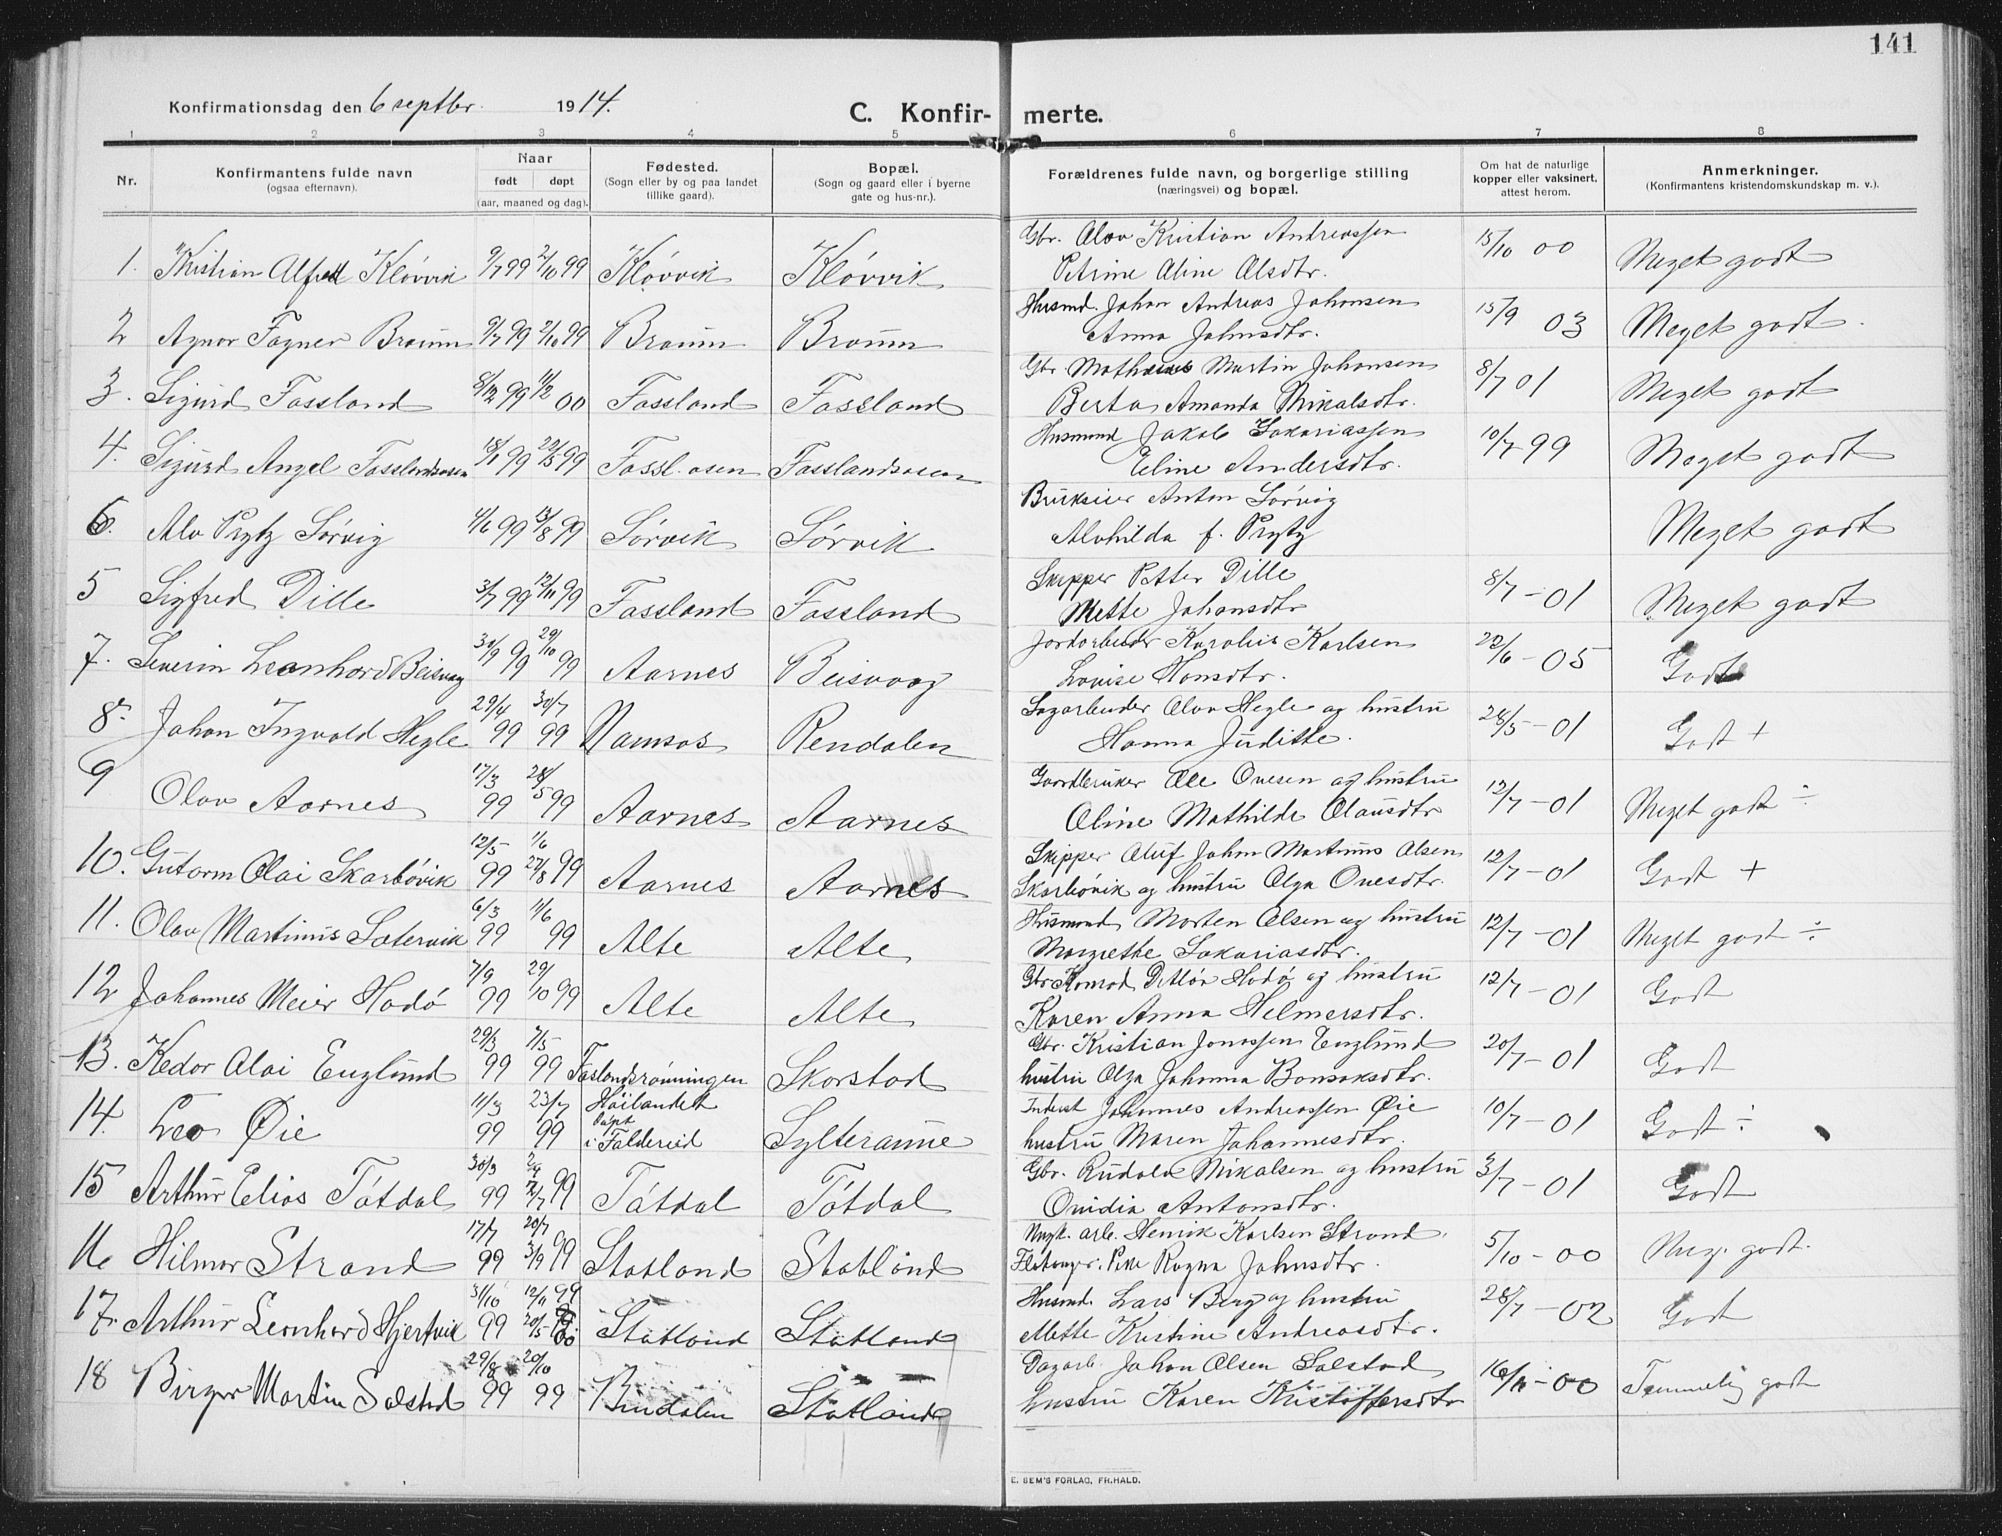 141
Konfirmationsdag den 6 septbr. 1914.
C. Konfir- merte.
1 2 3 4 5 6 7 8
Nr.
Konfirmantens fulde navn
(ogsaa efternavn).
Naar
født døpt
(aar, maaned og dag).
Fødested.
(Sogn eller by og paa landet
tillike gaard).
Bopæl.
(Sogn og gaard eller i byerne
gate og hus-nr.).
Forældrenes fulde navn, og borgerlige stilling
(næringsvei) og bopæl.
Om hat de naturlige
kopper eller vaksinert,
attest herom.
Anmerkninger.
(Konfirmantens kristendomskundskap m. v.).
Gbr. Olav Kristian Andreassen
1. Kristian Alfred Kløvvik 9/7 99 2/10 99 Kløvvik Kløvvik Petrine Oline Olsdtr. 15/10 00 Meget godt
Husmd. Johan Andreas Johansen
2 Agnor Fagner Braum 9/7 99 2/10 99 Braum Braum Anna Johnsdtr. 15/9 03 Meget godt.
Gbr Mathias Martin Johansen
3. Sigurd Fossland 8/12 99 11/2 00 Fossland Fossland Berta Amanda Mikalsdtr. 8/7 01 Meget godt
Husmand Jakob Sakariassen
4. Sigurd Angel Fosslandsosen 18/1 99 22/5 99 Fossl.osen Fosslandsosen Eline Andersdtr. 10/7 99 Meget godt
Brukseier Anton Sørvig
6. Alv Prytz Sørvig 4/6 99 13/8 99 Sørvik Sørvik Alvhilda f. Prytz Meget godt
Skipper Petter Dille
5 Sigfred Dille 3/7 99 12/11 99 Fossland Fossland Mette Johansdtr 8/7 - 01 Meget godt
Jordarbeider Karolius Karlsen
7. Severin Leonhard Beisvag 30/9 99 29/10 99 Aarnes Beisvaag Lovise Hansdtr. 22/6 - 05 Godt
Sagarbeider Olav Hegle og hustru
8. Johan Ingvald Hegle 29/4 99 30/7 99 Namsos Rendalen Hanna Juditte. 28/5 - 01 Godt +
Gaardbruker Ole Ovesen og hustru
9 Olav Aarnes 17/3 99 28/5 99 Aarnes Aarnes Oline Mathilde Olausdtr 12/7 - 01 Meget godt ÷
Skipper Oluf Johan Martinus Olsen
10. Gutorm Olai Skarbøvik 12/5 99 1/6 27/8 99 Aarnes Aarnes Skarbøvik og hustru Olga Ovesdtr. 12/7 - 01 Godt +
Husmand Morten Olsen og hustru
11. Olav Martinus Satervik 6/3 99 11/6 99 Alte Alte Margrethe Sakariasdtr. 12/7 - 01 Meget godt ÷
Gbr Konrad Ditløv Hodø og hustru
12 Johannes Meier Hodø 7/9 99 29/10 99 Alte Alte Karen Anna Helmersdtr. 12/7 - 01 Godt
Gbr. Kristian Jonassen Englund
13. Kedor Olai Englund 29/3 99 7/5 99 Foslandsrønningen Skorstad hustru Olga Johanna Bonsaksdtr. 20/7 - 01 Godt
Inderst Johannes Andreassen Øie
14. Leo Øie 11/3 99 23/7 99 Høilandet døpt i Foldereid Sylteraune hustru Maren Johannesdtr. 10/7 - 01 Godt ÷
Gbr. Rudolv Mikalsen og hustru
15 Arthur Elias Tøtdal 30/3 99 2/4 2/7 99 Tøtdal Tøtdal Ovidia Antonsdtr. 3/7 - 01 Godt
arb. Henrik Karlsen Strand.
16 Hilmar Strand 17/7 99 20/7 3/9 99 Statland Statland Pike Ragna Johnsdtr. 5/10 - 00 Meg. godt.
Husmd. Lars Berg og hustru
17. Arthur Leonhard Hjertvik 31/10 99 12/11 99 20/5 00 Statland Statland Mette Kristine Andreasdtr. 28/7 - 02 Godt
Dagarb. Johan Olsen Salstad
18 Birger Martin Salstad 29/8 99 29/10 99 Bindalen Statland hustru Karen Kristoffersdtr 16/11 - 00 Temmelig godt
E. SEM'S FORLAG, FR.HALD.